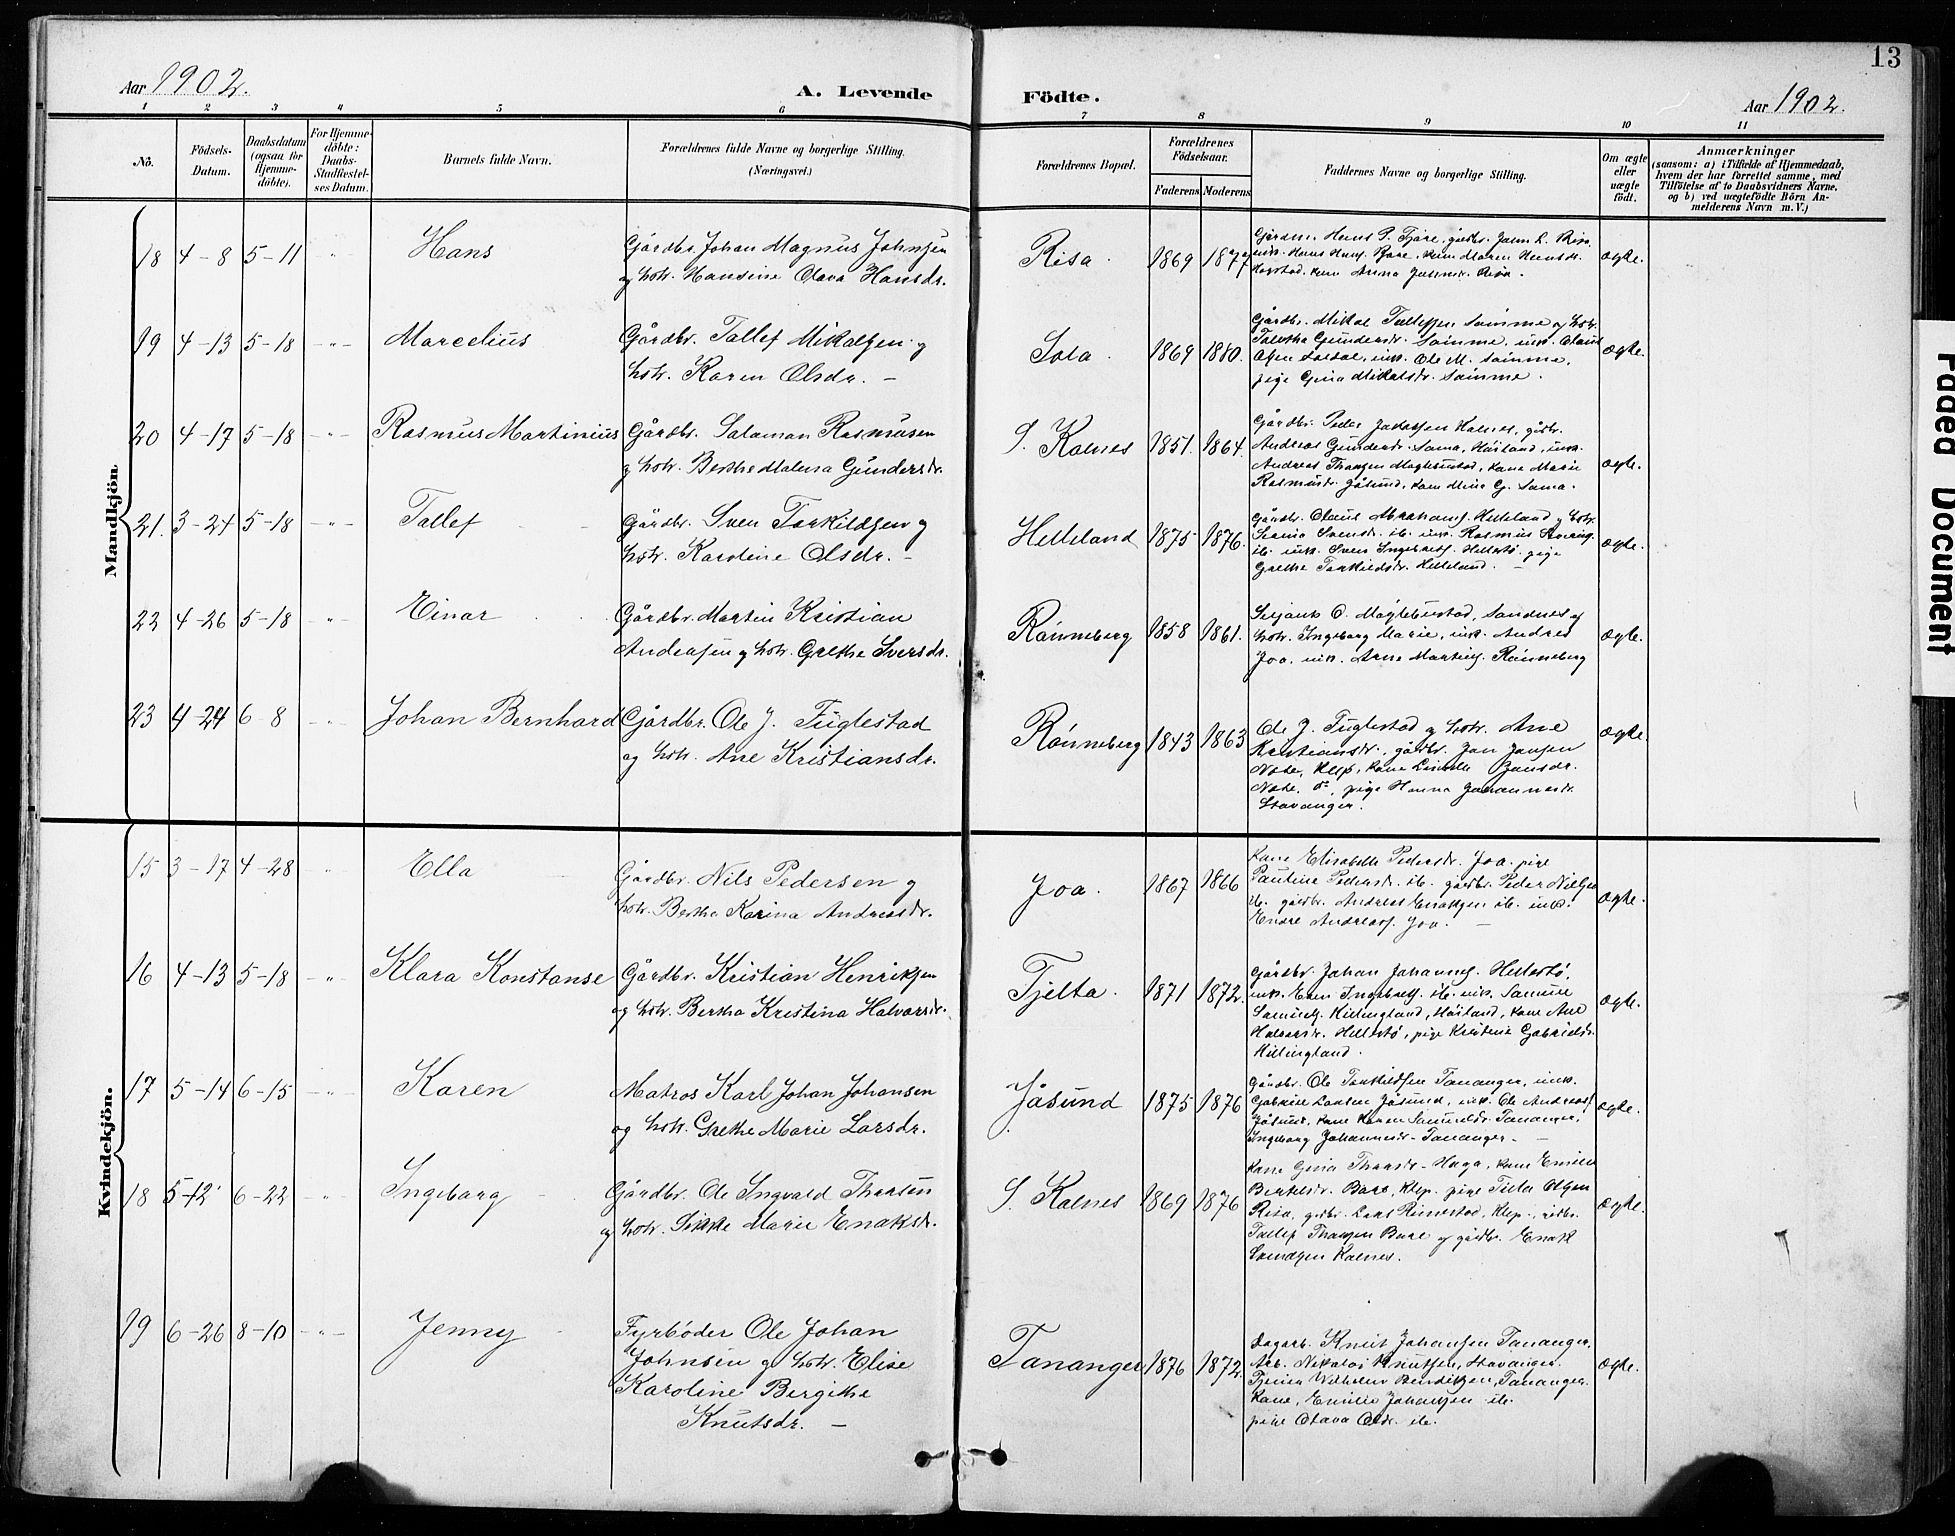 13
Aar 1902.
A. Levende
Födte.
Aar 1902.
1 2 3 4 5 6 7 8 9 10 11
No.
Födsels-
Datum.
Daabsdatum
(ogsaa for
Hjemme-
döbte).
For Hjemme-
döbte:
Daabs-
Stadfæstel-
ses Datum.
Barnets fulde Navn.
Forældrenes fulde Navne og borgerlige Stilling.
(Næringsvei.)
Forældrenes Bopæl.
Forældrenes
Födselsaar.
Faderens Moderens
Faddernes Navne og borgerlige Stilling.
Om ægte
eller
uægte
födt.
Anmærkninger
(saasom: a) i Tilfælde af Hjemmedaab,
hvem der har forrettet samme, med
Tilföielse af to Daabsvidners Navne,
og b) ved uægtefödte Börn An-
melderens Navn m. V.)
Mandkjön
18 4-8 5-11 -"- Hans
Gårdbr. Johan Magnus Johnsen
og hstr. Hansine Olava Hansdr.
Risa. 1869 1877
ægte.
19 4-13 5-18 -"- Marcelius
Gårdbr. Tallef Mikalsen og
hstr. Karen Olsdr. -
Sola. 1869 1880.
Gårdbr. Mikal Tallefsen Sømme og hstr.
Gundersdr. Sømme, ink. Olaus
Olsen Soldal, ink. Ole M. Sømme,
pige Gina Mikalsdr. Sømme.
ægte.
20 4-17 5-18 -"- Rasmus Martinius
Gårdbr. Salaman Rasmusen
og hstr. Berthe Malena Gundersdr.
S. Kolnes 1851. 1864.
Gårdbr. Peder Jakobsen Kolnes, gårdbr.
Andreas Gundersdr. Soma, Høiland, ink.
Andreas Thorsen Maglesustad, kone Marie
Rasmusdr. Jåsund, kone Mina G. Soma.
ægte.
21. 3-24 5-18 -"- Tallef
Gårdbr. Sven Torkildsen og
hstr. Karoline Olsdr. -
Helleland 1875 1876.
Gårdbr. Olaus Abrahams. Helleland og hstr.
Svensdr. ib. ink. Rasmus
ib. ink. Sven Ingebrets. Hellestø. pige
Grethe Torkildsdr. Helleland. -
ægte.
22 4-26 5-18 -"- Einar
Gårdbr. Martin Kristian
Andreasen og hstr. Grethe Sversdr.
Rønneberg 1858 1861.
Serjant O. Maglesustad, Sandnes og
hstr. Ingeborg Marie, ink. Andres
Joa. ink. Arne Martins. Rønneberg
ægte.
23 4-24 6-8 -"- Johan Bernhard
Gårdbr. Ole J. Fuglestad
og hstr. Ane Kristiansdr.
Rønneberg 1843 1863
Ole J. Fuglestad og hstr. Ane
Kristiansdr., gårdbr. Jon Jonsen
Næse, Klep, kone Jonsdr.
Næse, pige Hanna Johannesdr.
Stavanger.
ægte.
Kvindekjön.
15 3-17 4-28 Ella
Gårdbr. Nils Pedersen og
hstr. Berthe Karina Andreasdr.
Joa. 1867 1866
Kone Elisabeth Pedersdr. Joa. pige
Pauline Pedersdr. ib. gårdbr. Peder Nielsen
ib. gårdbr. Andreas Enoksen ib. ink.
Endre Andreass. Joa. -
ægte.
16 4-13 5-18 -"- Klara Konstanse
Gårdbr. Kristian Henriksen
og hstr. Bertha Kristina Halvorsdr.
Tjelta. 1871 1872.
Gårdbr. Johan Johannes. Hellestø,
ink. Even Ingebrets. ib. ink. Samuel
Samuels. Killingland, Høiland, kone Ane
Halvorsdr. Hellestø, pige Kristine Gabrielsdr.
Killingland.
ægte.
17 5-14 6-15 -"- Karen
Matros Karl Johan Johansen
og hstr. Grethe Marie Larsdr.
Jåsund 1875 1876
Gårdbr. Ole Torkildsen Tananger, ink.
Gabriel Larsen Jåsund, ink. Ole Andreas.
Jåsund, kone Karen Samuelsdr. Tananger,
Ingeborg Johannesdr. Tananger. -
ægte.
18 5-12 6-22 -"- Ingeborg
Gårdbr. Ole Ingvald Thorsen
og hstr. Sikke Marie Enoksdr.
S. Kolnes 1869 1876
Kone Gina Thorsdr. Haga, kone Emilie
Bertelsdr. Bore, Klep. pige Tilla Olsen
Risa, gårdbr. Lars Rimestad, Klep.
Tallef Thorsen Bore og gårdbr. Enok
Kolnes.
ægte.
19 6-26 8-10 -"- Jenny
Fyrbøder Ole Johan
Johnsen og hstr. Elise
Karoline Bergithe
Knutsdr. -
Tananger 1876 1872.
Dagarb. Knut Johansen Tananger,
Arb. Nikolai Knutsen, Stavanger.
Wilhelm Bendiksen, Tananger.
Kone, Emilie Johansen ib.
pige Olava Olsdr. ib.
ægte.
Faded Document